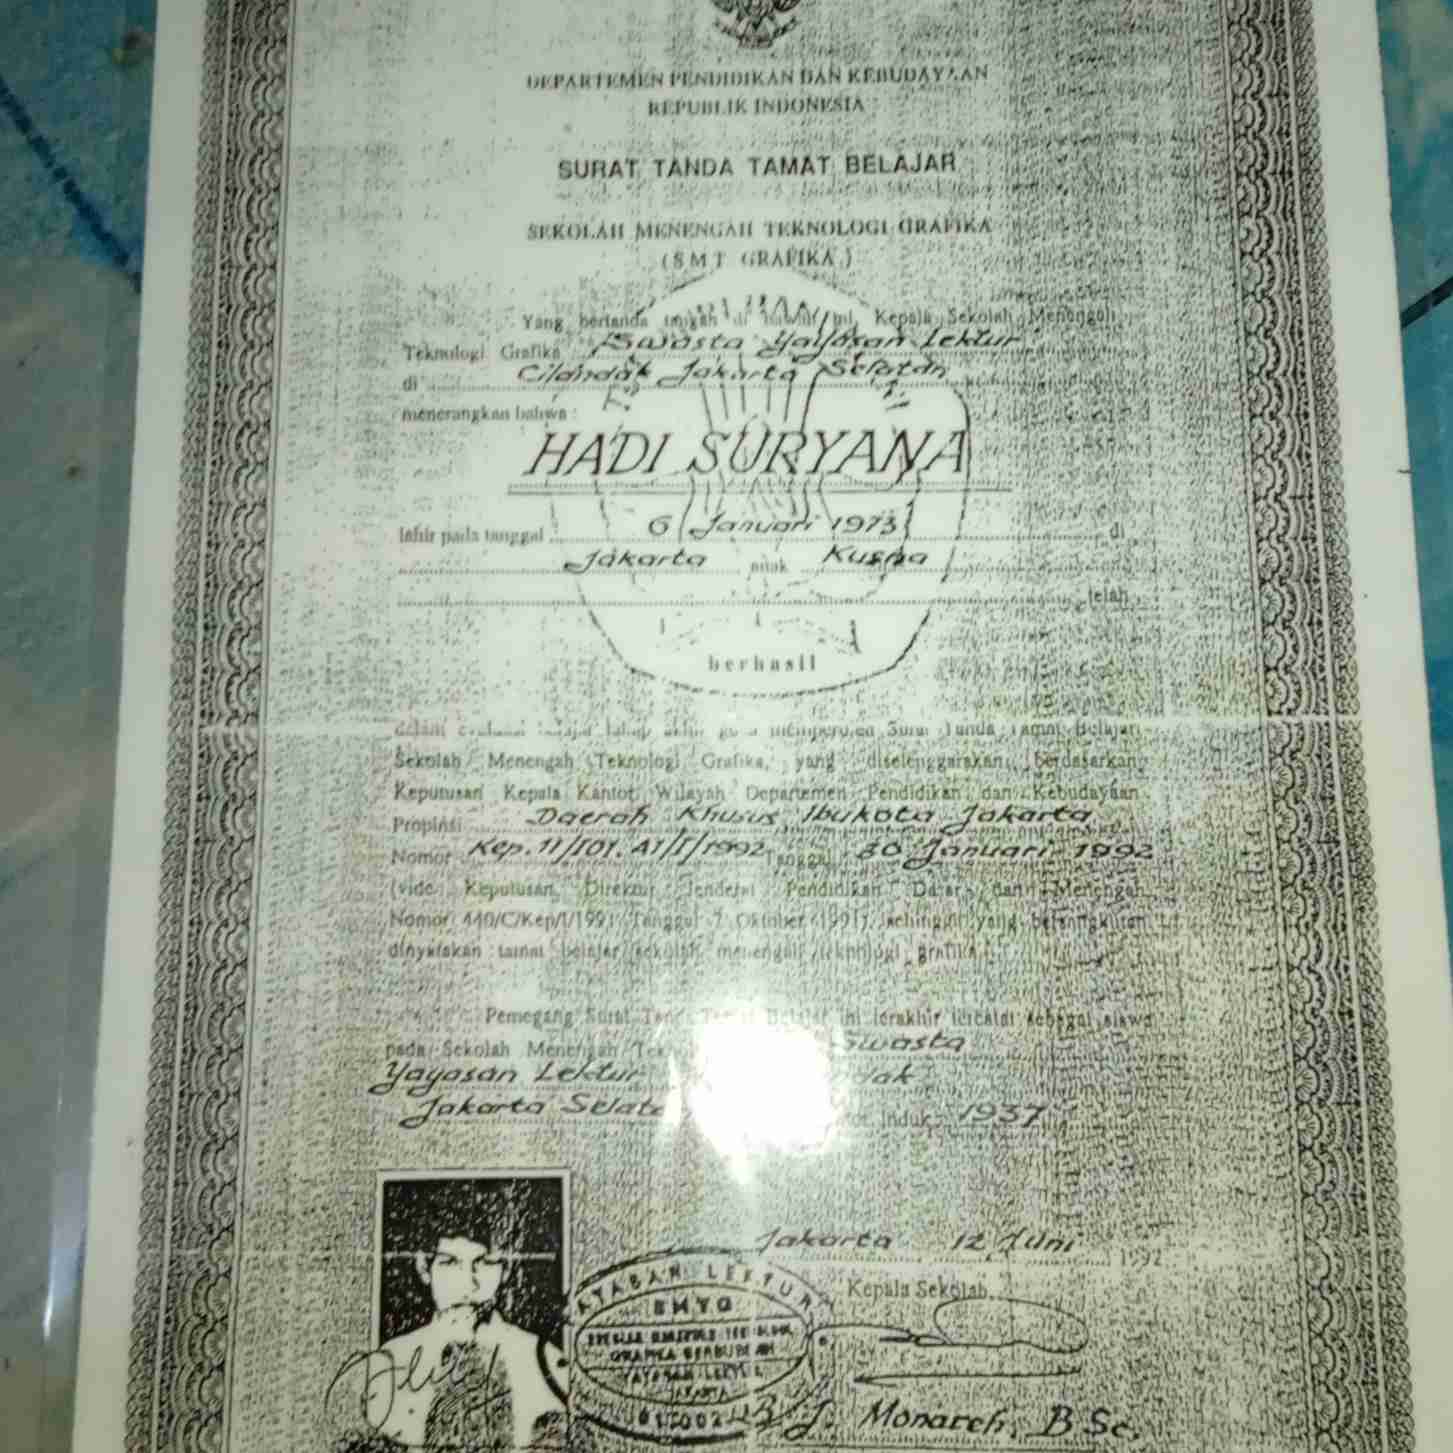 DEPARTEMEN PENDIDIKAN DAN KEBUDAYAAN
REPUBLIK INDONESIA
SURAT TANDA TAMAT BELAJAR
SEKOLAH MENENGAH TEKNOLOGI GRAFIKA
( S M T GRAFIKA )
Yang bertanda tangan di bawah ini, Kepala Sekolah Menengah
Teknologi Grafika Swasta Yayasan Lektur
di Cilandak Jakarta Selatan
menerangkan bahwa :
HADI SURYANA
lahir pada tanggal 6 Januari 1973 di
Jakarta anak Kusna
telah
berhasil
dalam belajar tahap akhir guna memperoleh Surat Tanda Tamat Belajar
Sekolah Menengah Teknologi Grafika, yang diselenggarakan berdasarkan
Keputusan Kepala Kantor Wilayah Departemen Pendidikan dan Kebudayaan
Propinsi Daerah Khusus Ibukota Jakarta
Nomor Kep.11/I01.A1/I/1992 Tanggal 30 Januari 1992
(vide Keputusan Direktur Jenderal Pendidikan Dasar dan Menengah
Nomor 440/C/Kep/I/1991 Tanggal 7 Oktober 1991), sehingga yang bersangkutan
dinyatakan tamat belajar sekolah menengah teknologi grafika.
Pemegang Surat Tanda Tamat Belajar ini terakhir tercatat sebagai siswa
pada Sekolah Menengah Swasta
Yayasan Lektur
Jakarta Induk 1937
Jakarta 12 Juni 1992
Kepala Sekolah,
YAYASAN LEKTUR
YAYASAN LEKTUR
JAKARTA
J. Monarch, B Sc,